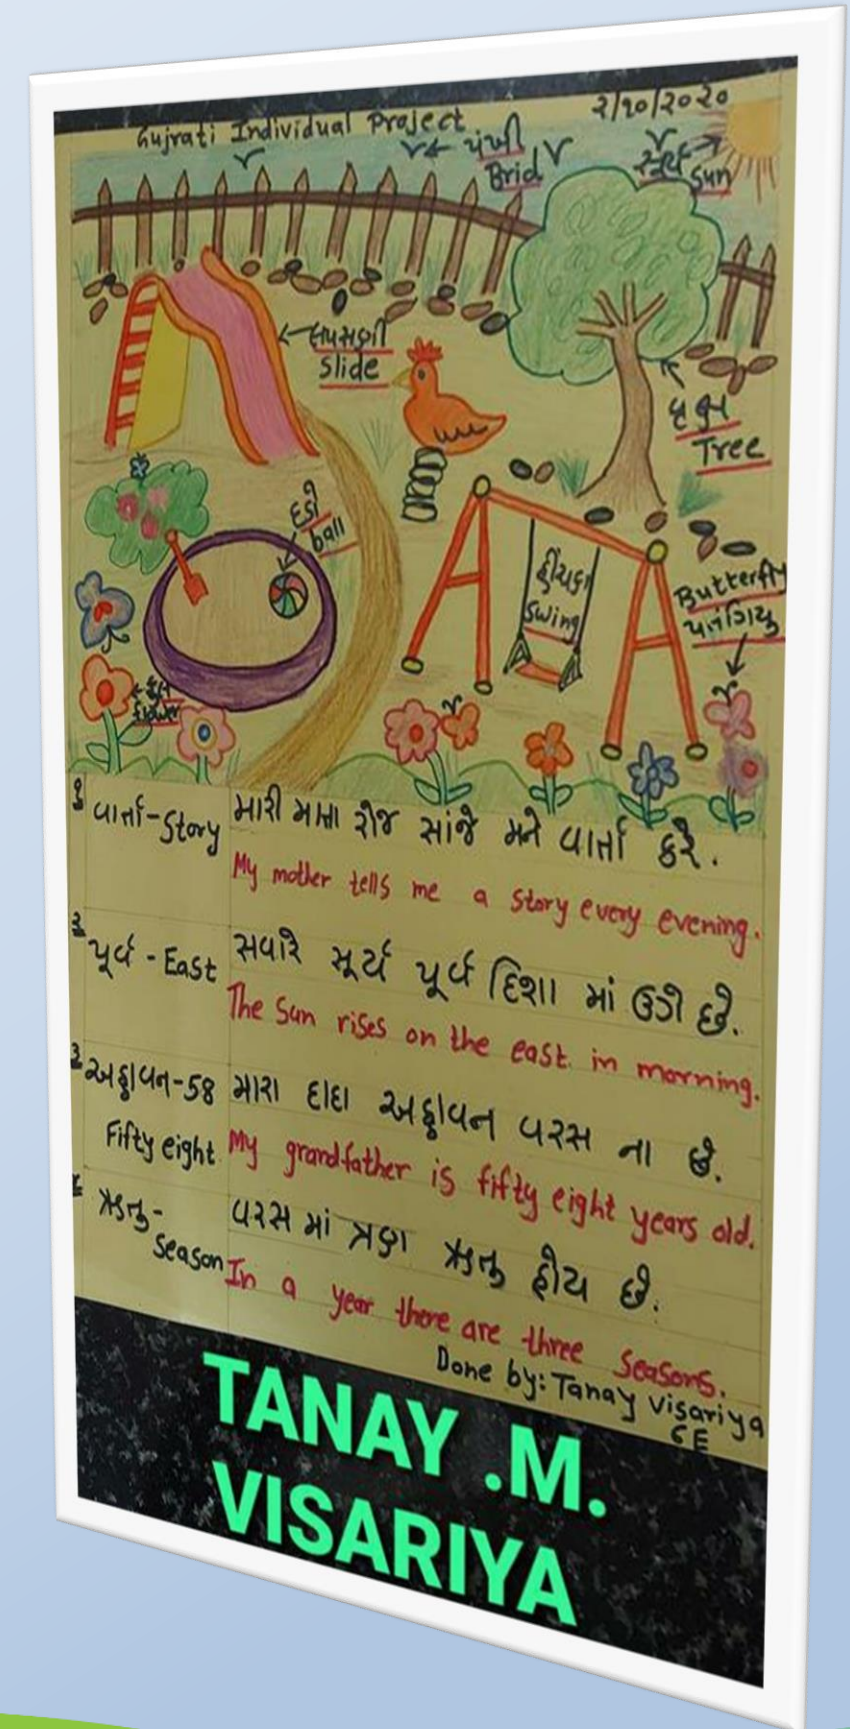 Gujrati Individual Project
૨/૧૦/૨૦૨૦
પંખી
Brid
સૂર્ય
Sun
લપસણી
Slide
વૃક્ષ
Tree
દડો
ball
હીંચકા
Swing
Butterfly
પતંગિયુ
ફુલ
flower
૧ વાર્તા-Story
મારી માતા રોજ સાંજે મને વાર્તા કરે.
My mother tells me a story every evening.
૨ પૂર્વ - East
સવારે સૂર્ય પૂર્વ દિશા માં ઉગે છે.
The Sun rises on the east in morning.
૩ અઠ્ઠાવન-58
Fifty eight
મારા દાદા અઠ્ઠાવન વરસ ના છે.
My grandfather is fifty eight years old.
૪ ઋતુ-
Season
વરસ માં ત્રણ ઋતુ હોય છે.
In a year there are three Seasons.
Done by: Tanay Visariya
6E
TANAY .M.
VISARIYA